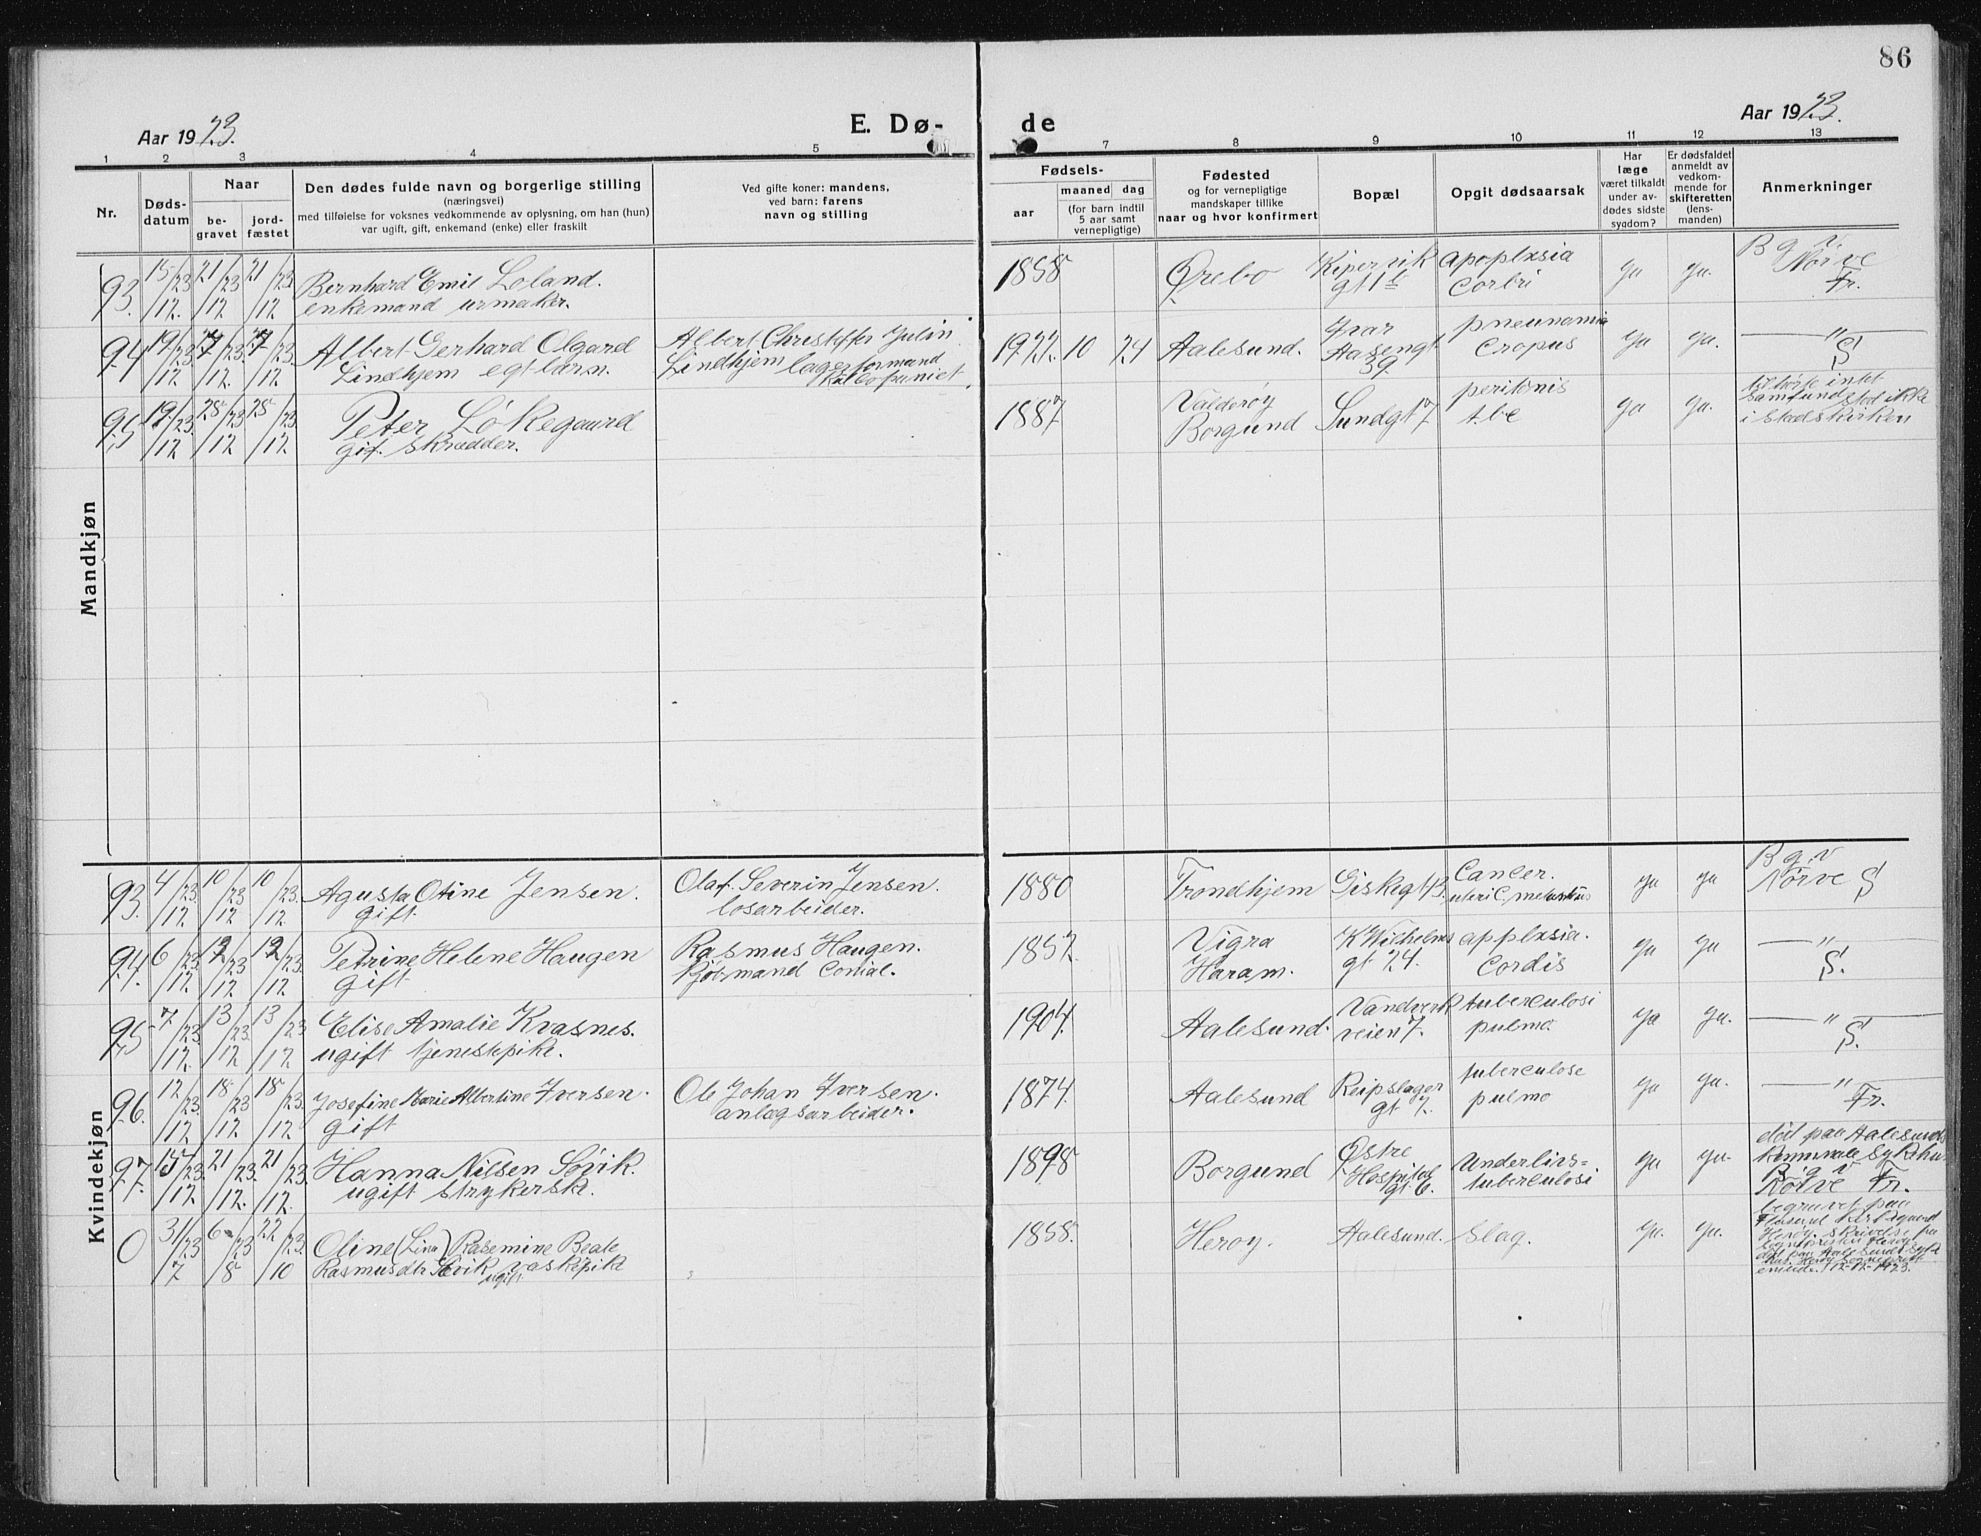 86
Aar 1923.
E. Dø-
de
Aar 1923.
1 2 3 4 5 7 8 9 10 11 12 13
Nr.
Døds-
datum
Naar
be-
gravet
jord-
fæstet
Den dødes fulde navn og borgerlige stilling
(næringsvei)
med tilføielse for voksnes vedkommende av oplysning, om han (hun)
var ugift, gift, enkemand (enke) eller fraskilt
Ved gifte koner: mandens,
ved barn: farens
navn og stilling
Fødsels-
aar
maaned dag
(for barn indtil
5 aar samt
vernepligtige)
Fødested
og for vernepligtige
mandskaper tillike
naar og hvor konfirmert
Bopæl
Opgit dødsaarsak
Har
læge
været tilkaldt
under av-
dødes sidste
sygdom?
Er dødsfaldet
anmeldt av
vedkom-
mende for
skifteretten
(lens-
manden)
Anmerkninger
Mandkjøn
93. 15/12 23 21/12 23 21/12 23
Bernhard Emil Loland.
enkemand urmaker.
1858 Ørebo Kipervik
gt 1b
apoplxsia
Corbri
ja ja.
B g v.
Nørve
Fr.
94 19/12 23 23. 23.
Albert Gerhard Olgard
Lindhjem egt barn.
Albert Christoffer Julin
Lindhjem lagerformand
1922 10 24 Aalesund. Ivar
Aasengt
39
pneunomia
Cropus
ja ja.
—"—
S
95 19/12 23. 28/12 23 28/12 23.
Peter Løkegaard
gif. skrædder.
1887 Valderøy
Borgund
Sundgt 7
peritonis
tbc
ja ja.
tilhørte intet
samfund stod ikke
i statskirken
Kvindekjøn
93. 4/12 23. 10/12 23 10/12 23.
Agusta Otine Jensen.
gift.
Olaf. Severin Jensen.
losarbeider.
1880 Trondhjem Giskegt 13.
Cancer.
uteri C.
ja ja
B g v
Nørve S
94. 6/12 23. 12/12 23 12/12 23.
Petrine Helene Haugen
gift
Rasmus Haugen.
kjøbmand
1852. Vigra
Haram.
K Wilhelms
gt 24.
applxsia.
Cordis
ja ja
—"—
S.
95 7/12 23. 13/12 23. 13/12 23
Elise Amalie Kvasnes.
ugift tjenestepike.
1904. Aalesund. Vandverk
veien 7.
tuberculosi
pulmo.
ja ja.
—"—
S.
96. 12/12 23. 18/12 23 18/12 23.
Josefine Marie Albertine Iversen.
gift
Ole Johan Iversen.
anlægsarbeider.
1874. Aalesund Reipslager
gt
tuberculose
pulmo
ja ja.
—"—
Fr.
97. 15/12 23. 21/12 23. 21/12 23.
Hanna Nilsen Søvik.
ugift strykersk.
1898 Borgund Østre
Hospital
gt. 6.
Underlivs=
tuberculosi
ja ja.
død paa Aalesunds
Komunale Sykehus
B g v
Nørve Fr.
0 31/7 23 6/8 23 22/10 23.
Oline (Lina) Rasemine Beate
Rasmusdtr Søvik vaskepike
ugift
1858. Herøy. Aalesund. Slag. ja. ja.
begravet paa